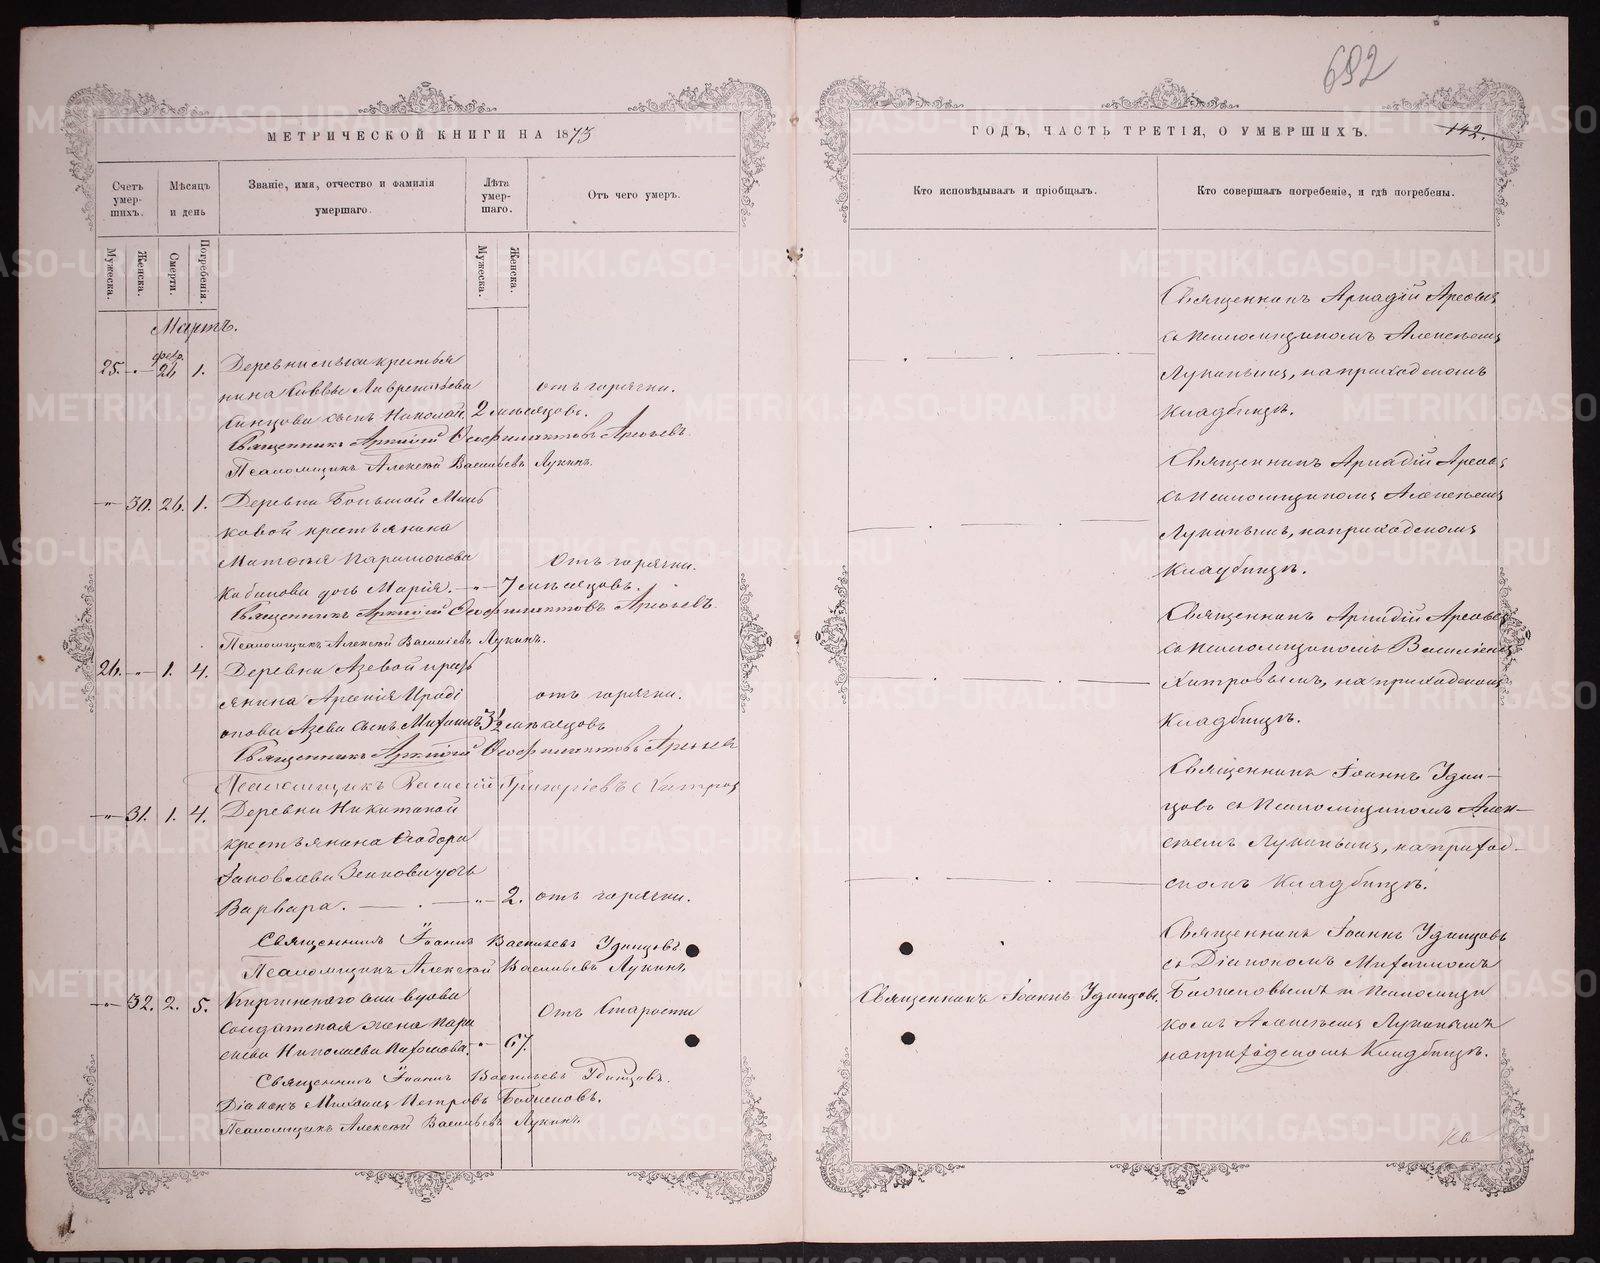 692
МЕТРИЧЕСКОЙ КНИГИ НА 1873
ГОДЪ, ЧАСТЬ ТРЕТІЯ, О УМЕРШИХЪ.
142.
Счетъ умер-шихъ.
Мѣсяцъ и день
Званіе, имя, отчество и фамилія умершаго.
Лѣта умер-шаго.
Отъ чего умеръ.
Кто исповѣдывалъ и пріобщалъ.
Кто совершалъ погребеніе, и гдѣ погребены.
Мужеска.
Женска.
Смерти.
Погребенія.
Мужеска.
Женска.
Мартъ.
февр.
25. 26 1. Деревни крестья
нина Саввы Лаврентьева
сынъ Николай. 2 мѣсяцовъ. отъ горячки.
Священникъ Аркадій Ѳеофилактовъ Арефьевъ.
Псаломщикъ Алексѣй Васильевъ Лукинъ.
Священникъ Аркадій Арефьевъ
съ псаломщикомъ Алексѣемъ
Лукинымъ, на приходскомъ
кладбищѣ.
30. 26. 1. Деревни Большой Мань
ковой крестьянина
Парамонова
Кабакова дочь Марія. 7 мѣсяцовъ. Отъ горячки.
Священникъ Аркадій Ѳеофилактовъ Арефьевъ.
Псаломщикъ Алексѣй Васильевъ Лукинъ.
Священникъ Аркадій Арефьевъ
съ псаломщикомъ Алексѣемъ
Лукинымъ, на приходскомъ
кладбищѣ.
26. 1. 4. Деревни Азевой кресть
янина Арсенія Ироді
онова Азева сынъ Михаилъ 3½ мѣсяцовъ отъ горячки.
Священникъ Аркадій Ѳеофилактовъ Арефьевъ
Псаломщикъ Василій Григоріевъ Хитров
Священникъ Аркадій Арефьевъ
съ псаломщикомъ Василіемъ
Хитровымъ, на приходскомъ
кладбищѣ.
31. 1. 4. Деревни Никитиной
крестьянина Ѳеодора
Іаковлева Зенкова дочь
Варвара. 2. отъ горячки.
Священникъ Іоаннъ Васильевъ Удинцовъ.
Псаломщикъ Алексѣй Васильевъ Лукинъ
Священникъ Іоаннъ Удин-
цовъ съ псаломщикомъ Алек-
сѣемъ Лукинымъ, на приход-
скомъ кладбищѣ.
32. 2. 5. Киргинскаго села вдова
солдатская жена Пара
скева Николаева 67. Отъ старости
Священникъ Іоаннъ Васильевъ Удинцовъ.
Діаконъ Михаилъ Петровъ
Псаломщикъ Алексѣй Васильевъ Лукинъ
Священникъ Іоаннъ Удинцовъ.
Священникъ Іоаннъ Удинцовъ
съ Діакономъ Михаиломъ
и псаломщи
комъ Алексѣемъ Лукинымъ
на приходскомъ кладбищѣ.
METRIKI.GASO-URAL.RU